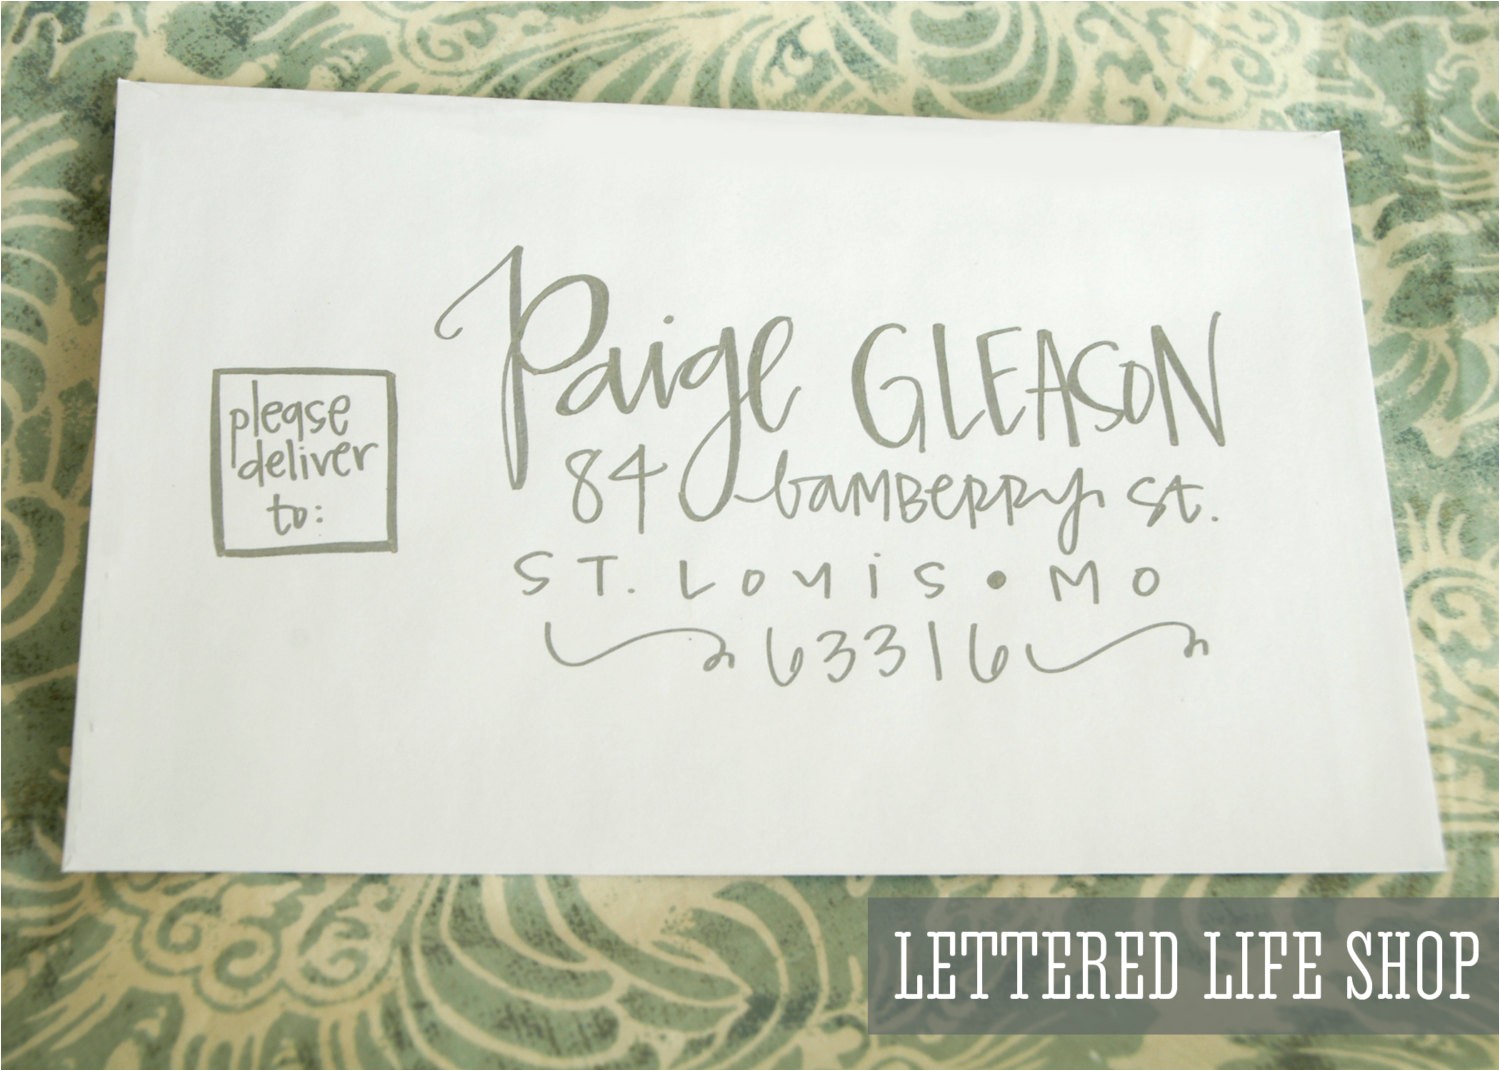 please
deliver
to:
Paige GLEASON
84 bamberry st.
ST. Louis • MO
63316
LETTERED LIFE SHOP